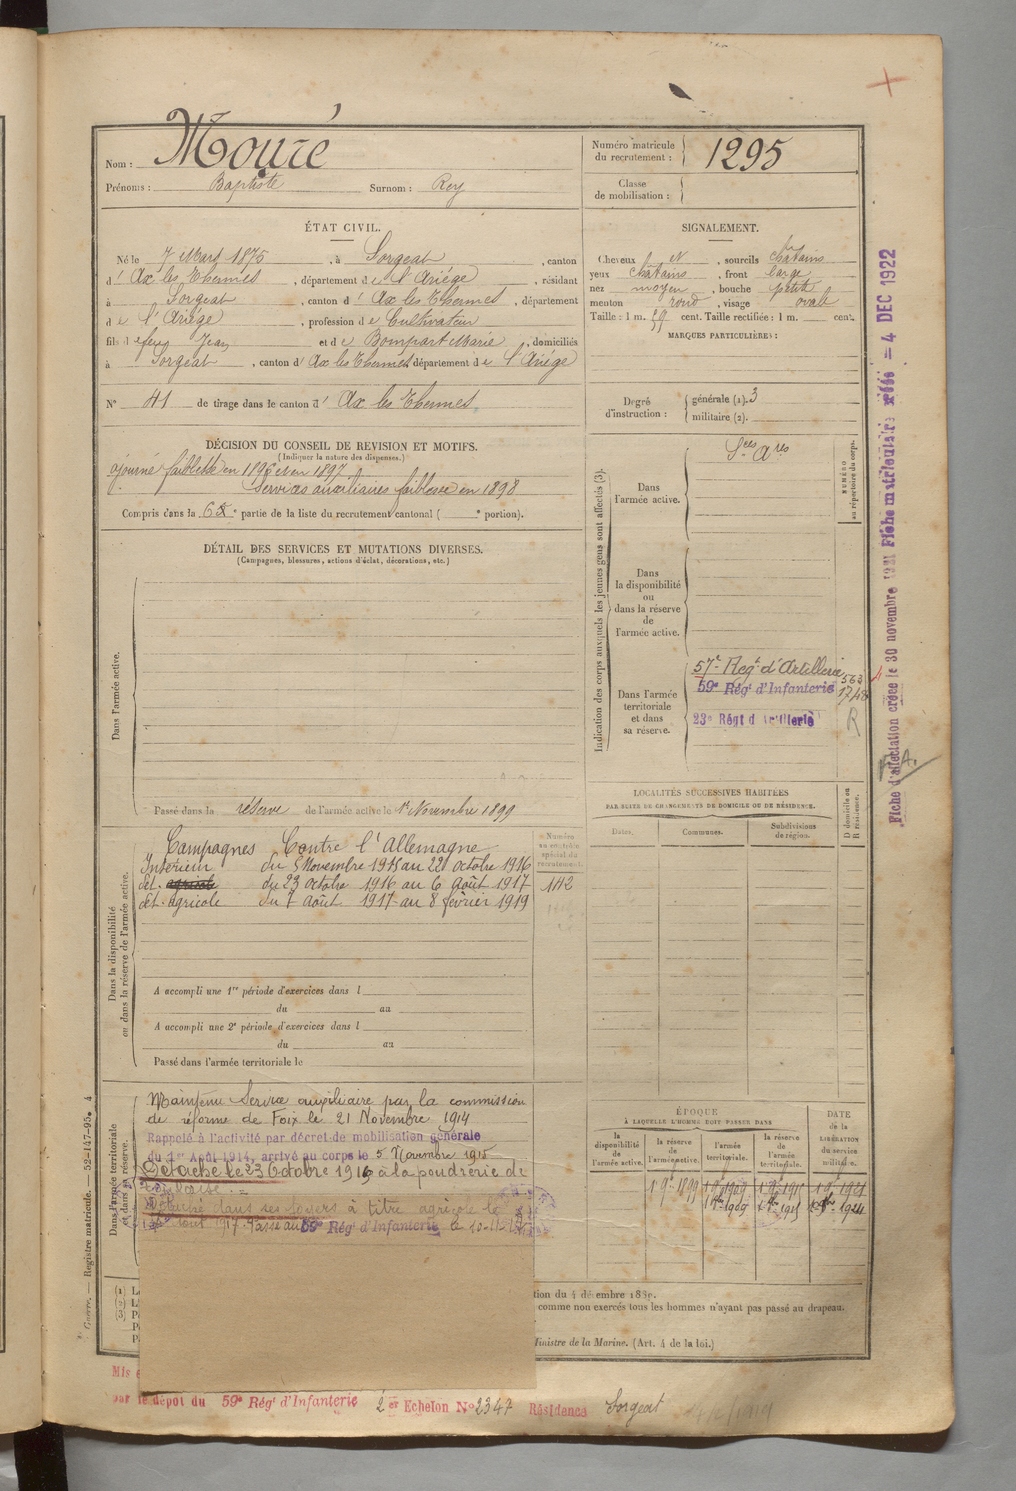 Nom : Mouré
Prénoms : Baptiste Surnom : Rey
Numéro matricule du recrutement : 1295
Classe de mobilisation :
ÉTAT CIVIL.
Né le 7 Mars 1875, à Sorgeat, canton
d' Ax les Thermes, département de l'Ariége, résidant
à Sorgeat, canton d' Ax les Thermes, département
de l'Ariége, profession de Cultivateur
fils de feu Jean et de Bompart Marie, domiciliés
à Sorgeat, canton d' Ax les Thermes département de l'Ariége
N° 41 de tirage dans le canton d' Ax les Thermes.
DÉCISION DU CONSEIL DE REVISION ET MOTIFS.
(Indiquer la nature des dispenses.)
ajourné faiblesse en 1896 et en 1897
Services auxiliaires faiblesse en 1898
Compris dans la 6e partie de la liste du recrutement cantonal ( e portion).
DÉTAIL DES SERVICES ET MUTATIONS DIVERSES.
(Campagnes, blessures, actions d'éclat, décorations, etc.)
Dans l'armée active.
Passé dans la réserve de l'armée active le 1er Novembre 1899
Dans la disponibilité ou dans la réserve de l'armée active.
Numéro au contrôle spécial du recrutement.
142
Campagnes Contre l'Allemagne
Intérieur du 5 Novembre 1915 au 22 octobre 1916
dét. agricole du 23 octobre 1916 au 6 Août 1917
dét. agricole du 7 août 1917 au 8 février 1919
A accompli une 1re période d'exercices dans l
du au
A accompli une 2e période d'exercices dans l
du au
Passé dans l'armée territoriale le
Dans l'armée territoriale et dans sa réserve.
Maintenu Service auxiliaire par la commission
de réforme de Foix le 21 Novembre 1914
Rappelé à l'activité par décret de mobilisation générale
du 1er Août 1914, arrivé au corps le 5 Novembre 1915
Détaché le 23 Octobre 1916 à la poudrerie de
Toulouse. =
Détaché dans ses foyers à titre agricole le
août 1917. Passé au 59e Régt d'Infanterie le 10-11-
SIGNALEMENT.
Cheveux N, sourcils châtains
yeux châtains, front large
nez moyen, bouche petite
menton rond, visage ovale
Taille : 1 m. 59 cent. Taille rectifiée : 1 m. cent.
MARQUES PARTICULIÈRES :
Degré d'instruction : générale (1). 3
militaire (2).
Indication des corps auxquels les jeunes gens sont affectés (3).
NUMÉRO au répertoire du corps.
Dans l'armée active.
Sces Ares
Dans la disponibilité ou dans la réserve de l'armée active.
Dans l'armée territoriale et dans sa réserve.
57e Regt d'Artillerie 563
59e Régt d'Infanterie 1748
23e Régt d'Artillerie R
LOCALITÉS SUCCESSIVES HABITÉES
PAR SUITE DE CHANGEMENTS DE DOMICILE OU DE RÉSIDENCE.
Dates. Communes. Subdivisions de région. D domicile ou R résidence.
ÉPOQUE
À LAQUELLE L'HOMME DOIT PASSER DANS
la disponibilité de l'armée active. la réserve de l'armée active. l'armée territoriale. la réserve de l'armée territoriale. DATE de la LIBÉRATION du service militaire.
Fiche d'affectation créée le 30 novembre 1921 Fiche matriculaire créée = 4 DEC 1922
Guerre. — Registre matricule. — 52-147-95. 4
tion du 4 décembre 1889.
comme non exercés tous les hommes n'ayant pas passé au drapeau.
Ministre de la Marine. (Art. 4 de la loi.)
Mis
par le dépôt du 59e Régt d'Infanterie 2er Echelon N° 2347 Résidence Sorgeat